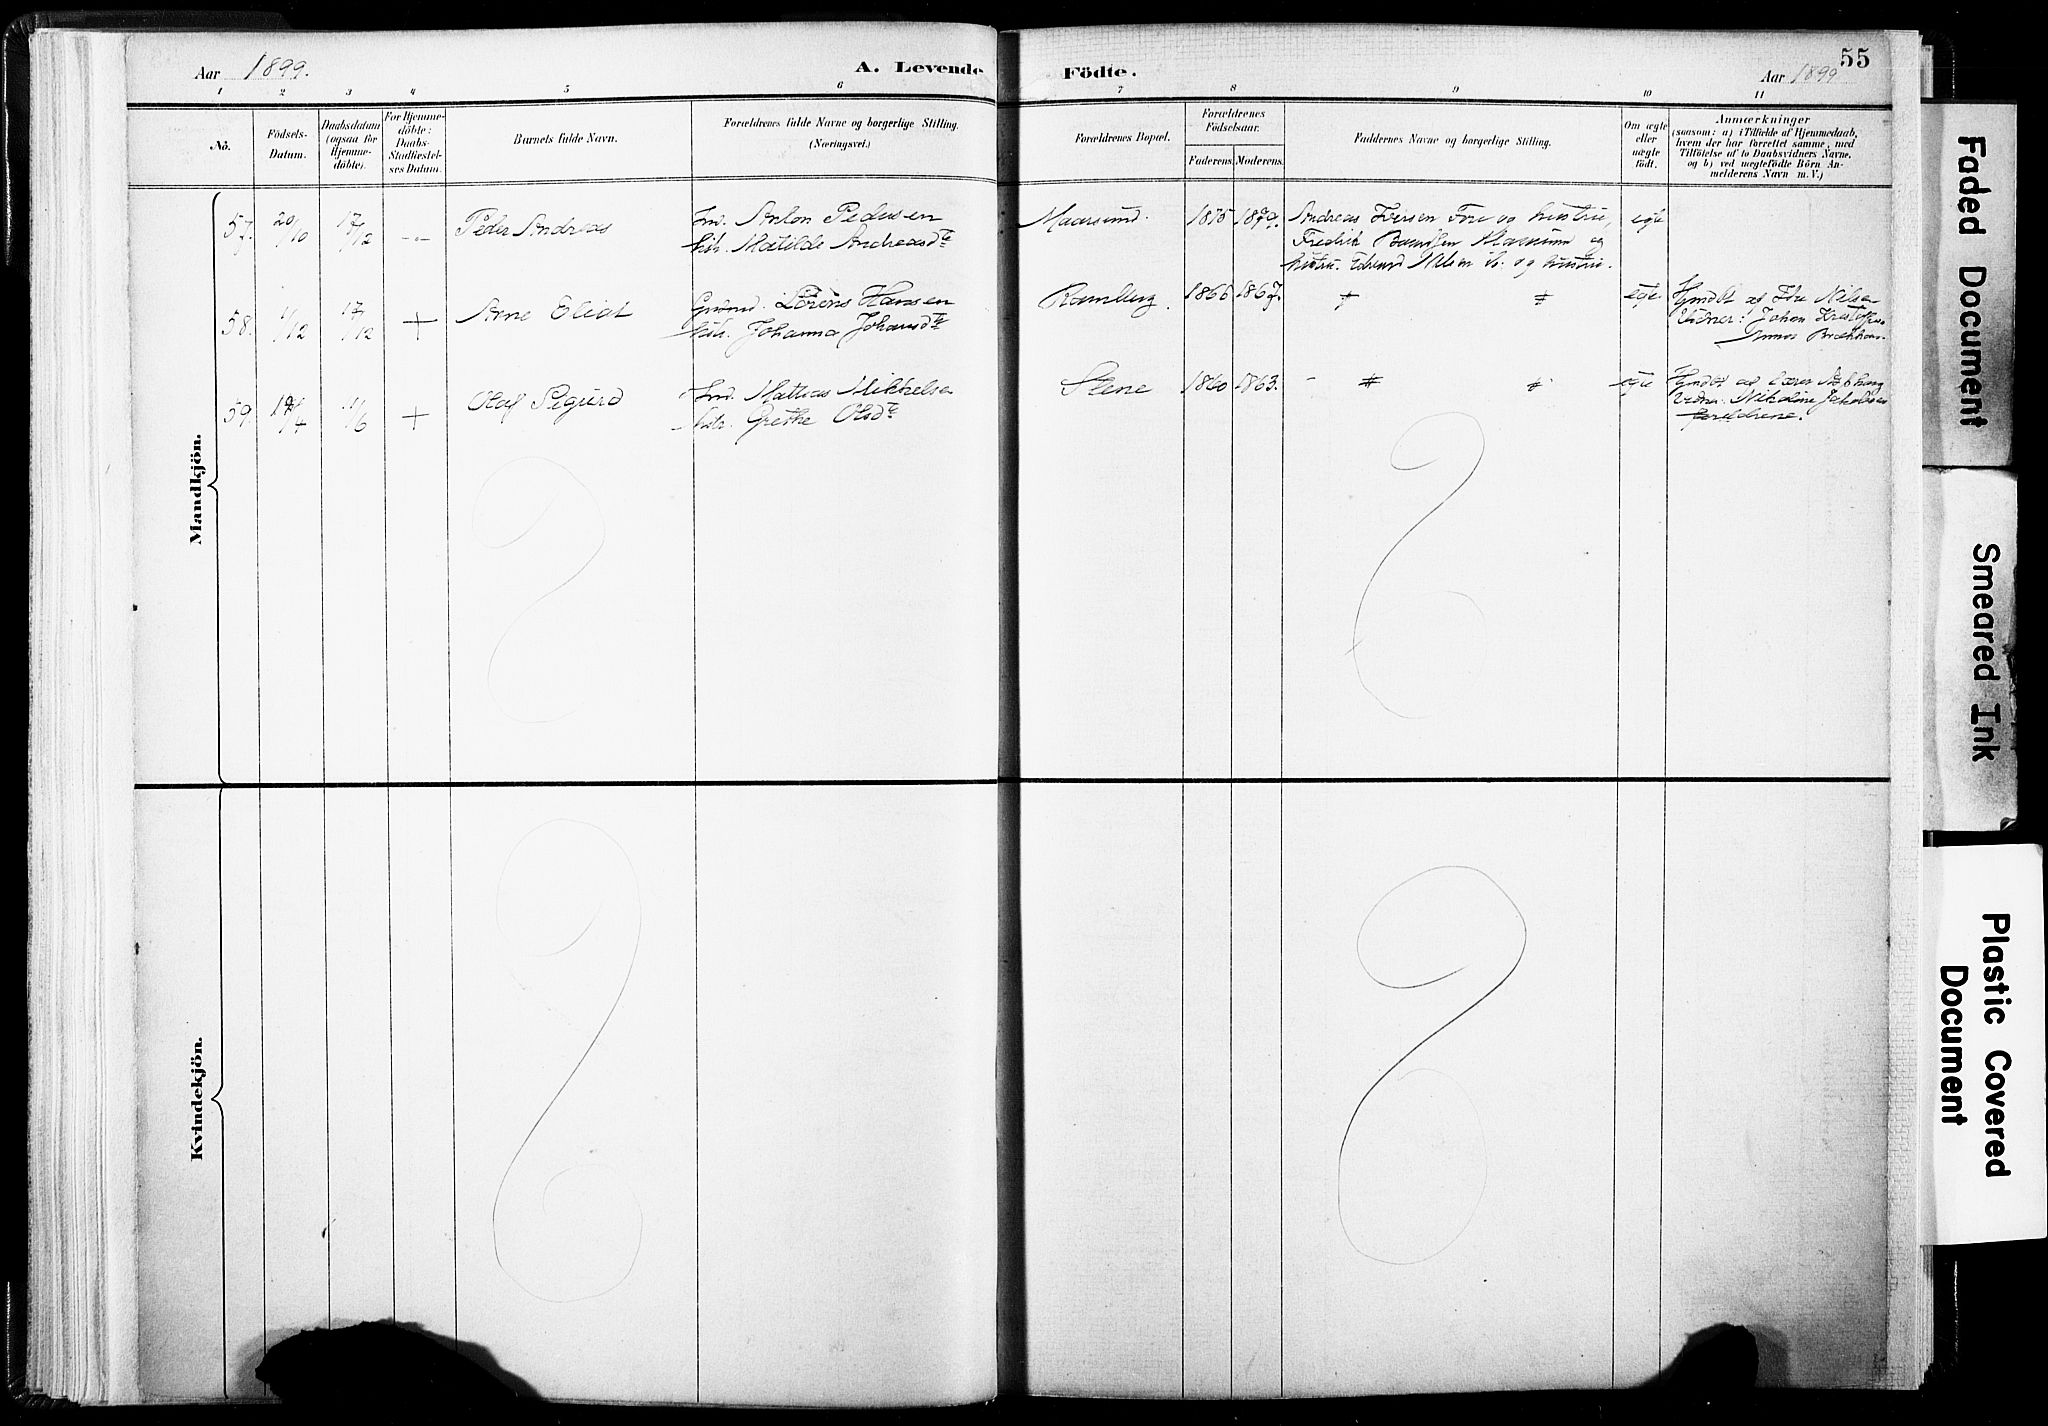 Aar 1899.
A. Levende Födte.
55
Aar 1899
1 2 3 4 5 6 7 8 9 10 11
Nô.
Födsels-
Datum.
Daabsdatum
(ogsaa for
Hjemme-
döbte).
For Hjemme-
döbte:
Daabs-
Stadfæstel-
ses Datum.
Barnets fulde Navn.
Forældrenes fulde Navne og borgerlige Stilling.
(Næringsvei.)
Forældrenes Bopæl.
Forældrenes
Födselsaar.
Faderens. Moderens.
Faddernes Navne og borgerlige Stilling.
Om ægte
eller
uægte
födt.
Anmærkninger
(saasom: a) i Tilfælde af Hjemmedaab,
hvem der har forrettet samme, med
Tilföielse af to Daabsvidners Navne,
og b) ved uegtefödte Börn An-
melderens Navn m. V.)
Mandkjön.
57. 20/10 17/12 Peder Andreas
Ind. Anton Pedersen
Hstr. Matilde Andreasd
Maarsund. 1875 1879.
Andreas Iversen Fore og hustru,
Fredrik og
hustru. Edvard Nilsen ib. og hustru.
egte
58. 1/12 17/12 + Arne Eliot
Lorens Hansen
Hstr. Johanna Johansd
Ramberg. 1866 1867. # #
egte.
Hjmdbt af Nilsen
Vidner: Johan
59. /4 11/6 + Olaf Sigurd
Ind. Mattias Mikkelsen
Hstr. Grethe Olsd
Stene 1860 1863. # #
egte
Hjmdbt af lærer
Vidner. Nikoline Jakobsen
forældrene.
Kvindekjön.
Faded Document
Smeared Ink
Plastic Covered
Document